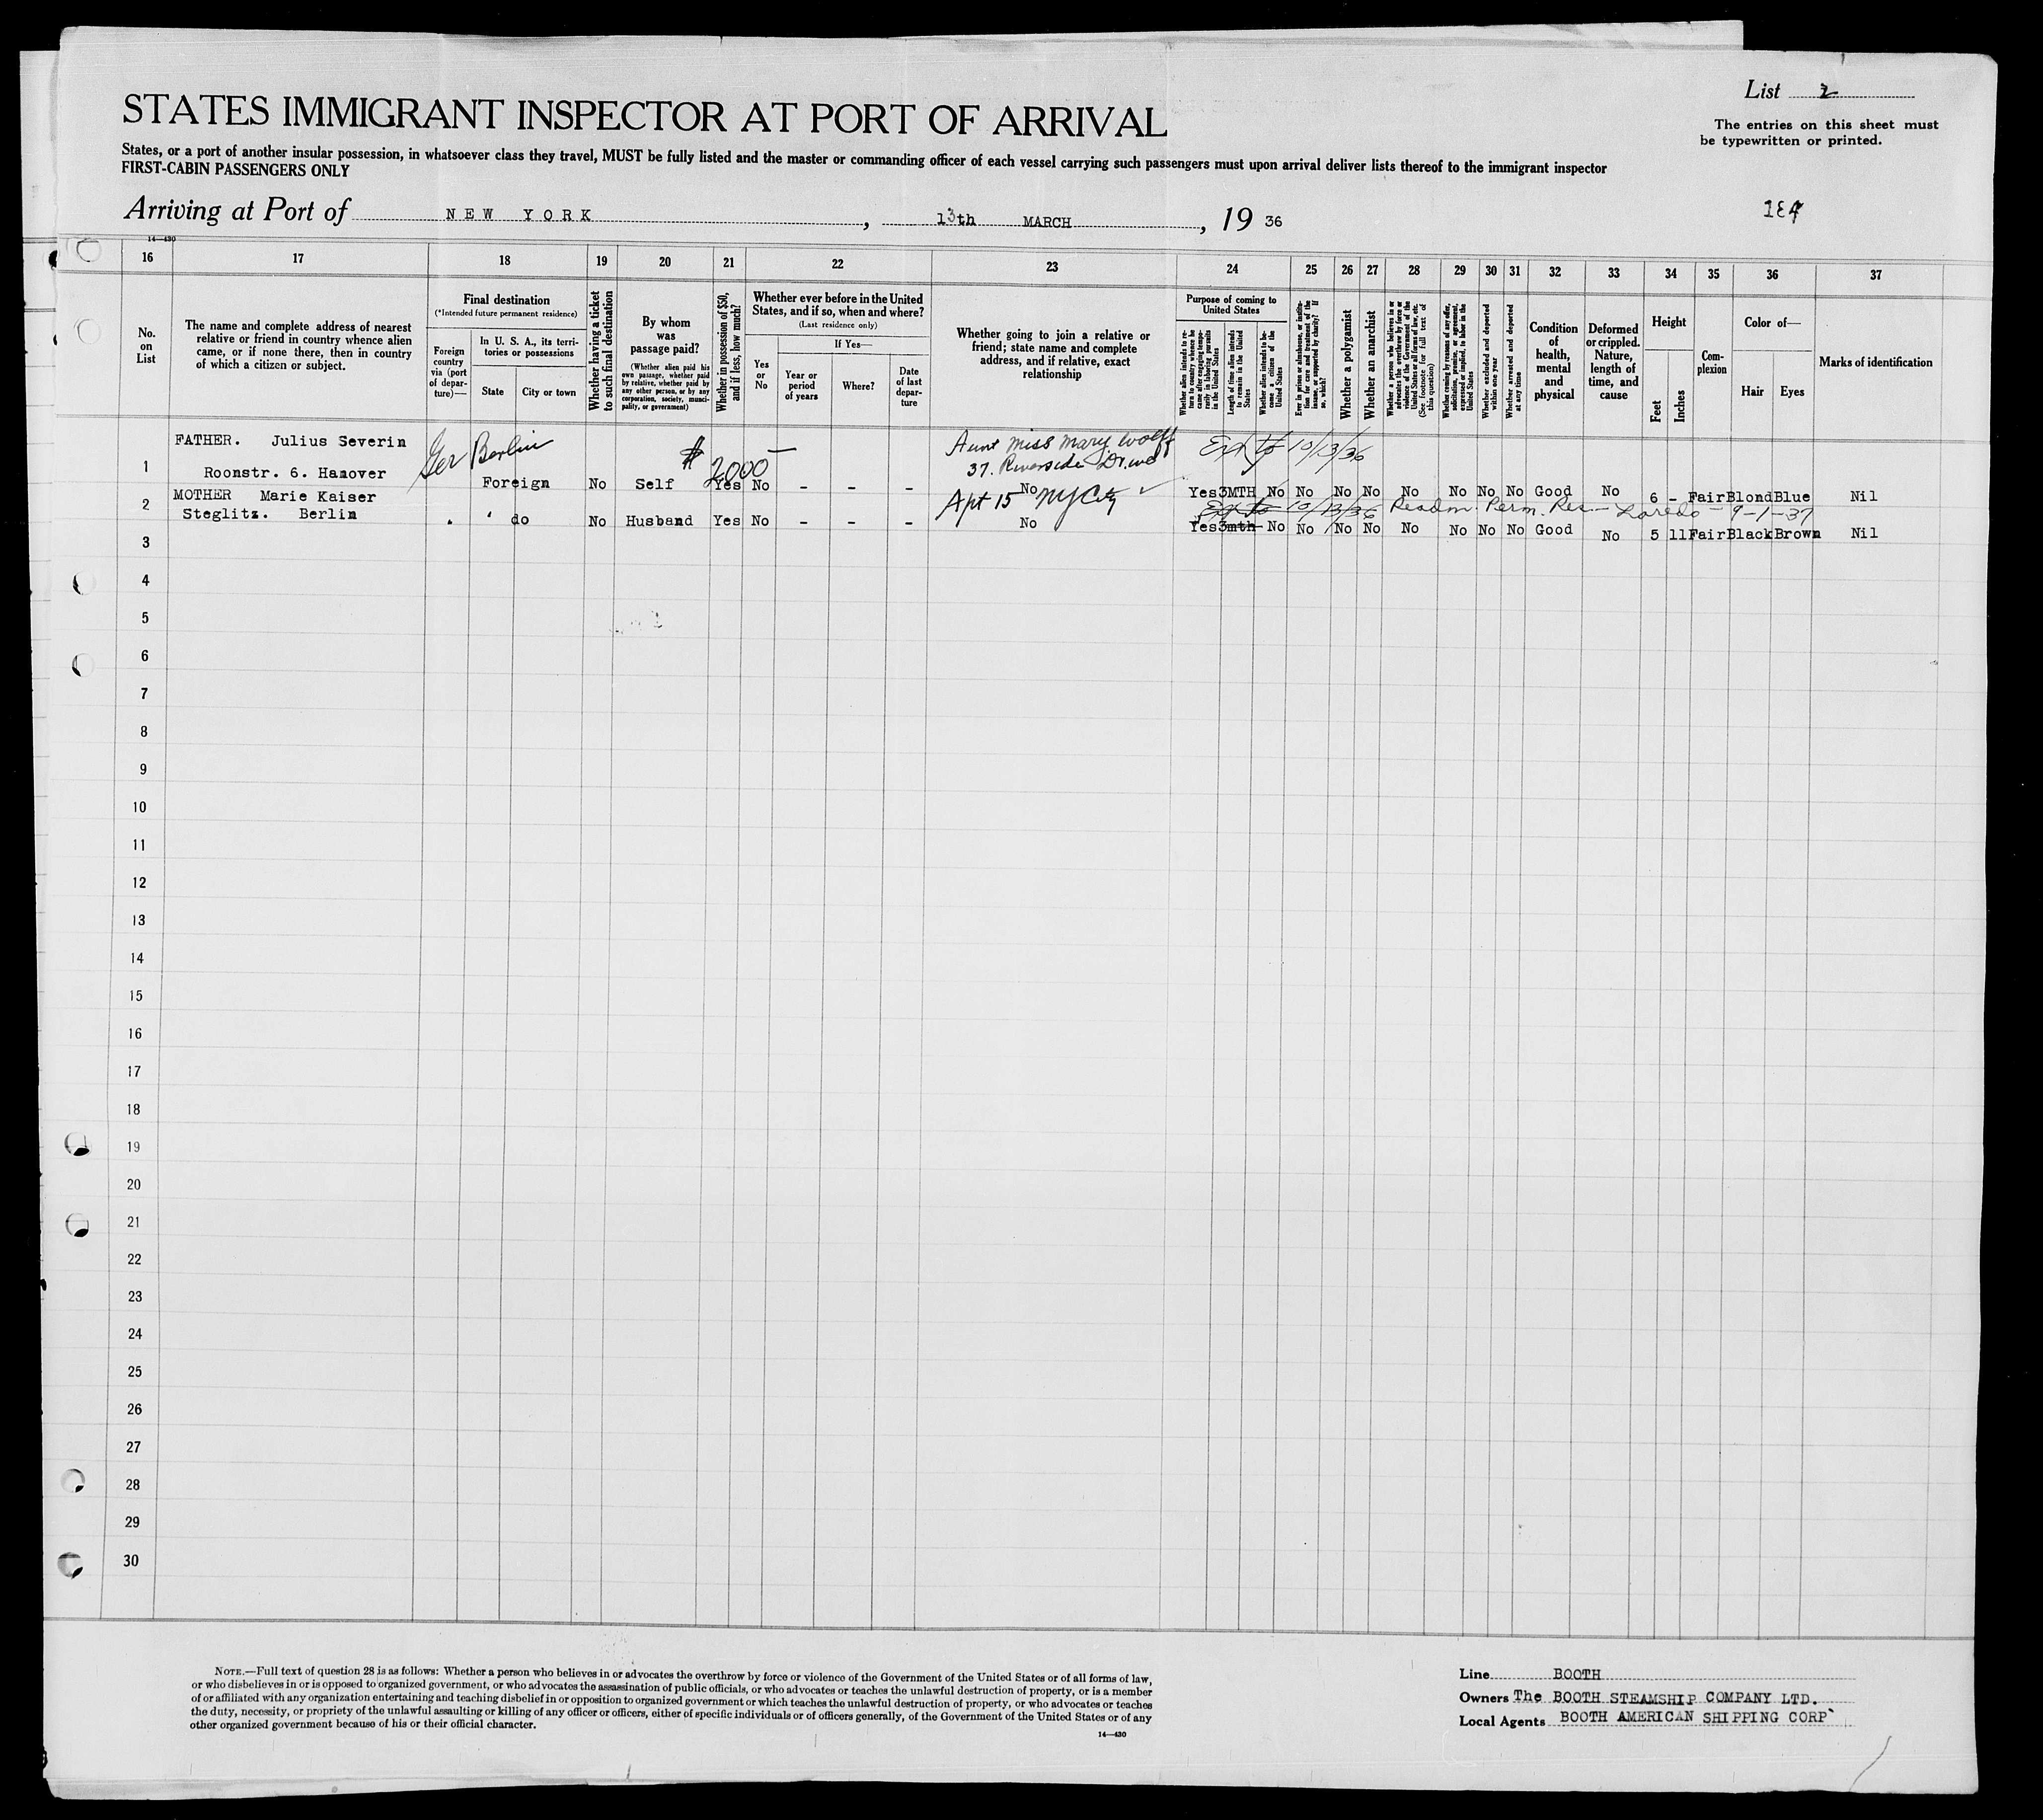 List 2
The entries on this sheet must
be typewritten or printed.
STATES IMMIGRANT INSPECTOR AT PORT OF ARRIVAL
States, or a port of another insular possession, in whatsoever class they travel, MUST be fully listed and the master or commanding officer of each vessel carrying such passengers must upon arrival deliver lists thereof to the immigrant inspector
FIRST-CABIN PASSENGERS ONLY
Arriving at Port of NEW YORK, 13th MARCH, 19 36
14—430
16 17 18 19 20 21 22 23 24 25 26 27 28 29 30 31 32 33 34 35 36 37
No.
on
List
The name and complete address of nearest
relative or friend in country whence alien
came, or if none there, then in country
of which a citizen or subject.
Final destination
(*Intended future permanent residence)
Foreign
country
via (port
of depar-
ture)—
In U. S. A., its terri-
tories or possessions
State
City or town
Whether having a ticket
to such final destination
By whom
was
passage paid?
(Whether alien paid his
own passage, whether paid
by relative, whether paid by
any other person, or by any
corporation, society, munici-
pality, or government)
Whether in possession of $50,
and if less, how much?
Whether ever before in the United
States, and if so, when and where?
(Last residence only)
Yes
or
No
If Yes—
Year or
period
of years
Where?
Date
of last
depar-
ture
Whether going to join a relative or
friend; state name and complete
address, and if relative, exact
relationship
Purpose of coming to
United States
Whether alien intends to re-
turn to country whence he
came after engaging tempo-
rarily in laboring pursuits
in the United States
Length of time alien intends
to remain in the United
States
Whether alien intends to be-
come a citizen of the
United States
Ever in prison or almshouse, or institu-
tion for care and treatment of the
insane, or supported by charity? If
so, which?
Whether a polygamist
Whether an anarchist
Whether a person who believes in or
advocates the overthrow by force or
violence of the Government of the
United States or all forms of law, etc.
(See footnote for full text of
this question)
Whether coming by reason of any offer,
solicitation, promise, or agreement,
expressed or implied, to labor in the
United States
Whether excluded and deported
within one year
Whether arrested and deported
at any time
Condition
of
health,
mental
and
physical
Deformed
or crippled.
Nature,
length of
time, and
cause
Height
Feet
Inches
Com-
plexion
Color of—
Hair
Eyes
Marks of identification
FATHER. Julius Severin
Ger Berlin
$ 2000
Aunt Miss Mary Wolff
Ext to 10/13/36
1
Roonstr. 6. Hanover
37. Riverside Drive
Foreign No Self Yes No – – – No Yes 3MTH No No No No No No No No Good No 6 – Fair Blond Blue Nil
Apt 15 NY City
2
MOTHER Marie Kaiser
Ext to 10/13/36 Readm. Perm. Res— Laredo — 9-1-37
Steglitz. Berlin
" do No Husband Yes No – – – No Yes 3mth No No No No No No No No Good No 5 11 Fair Black Brown Nil
3
4
5
6
7
8
9
10
11
12
13
14
15
16
17
18
19
20
21
22
23
24
25
26
27
28
29
30
NOTE.—Full text of question 28 is as follows: Whether a person who believes in or advocates the overthrow by force or violence of the Government of the United States or of all forms of law,
or who disbelieves in or is opposed to organized government, or who advocates the assassination of public officials, or who advocates or teaches the unlawful destruction of property, or is a member
of or affiliated with any organization entertaining and teaching disbelief in or opposition to organized government or which teaches the unlawful destruction of property, or who advocates or teaches
the duty, necessity, or propriety of the unlawful assaulting or killing of any officer or officers, either of specific individuals or of officers generally, of the Government of the United States or of any
other organized government because of his or their official character.
14—430
Line BOOTH
Owners The BOOTH STEAMSHIP COMPANY LTD.
Local Agents BOOTH AMERICAN SHIPPING CORP